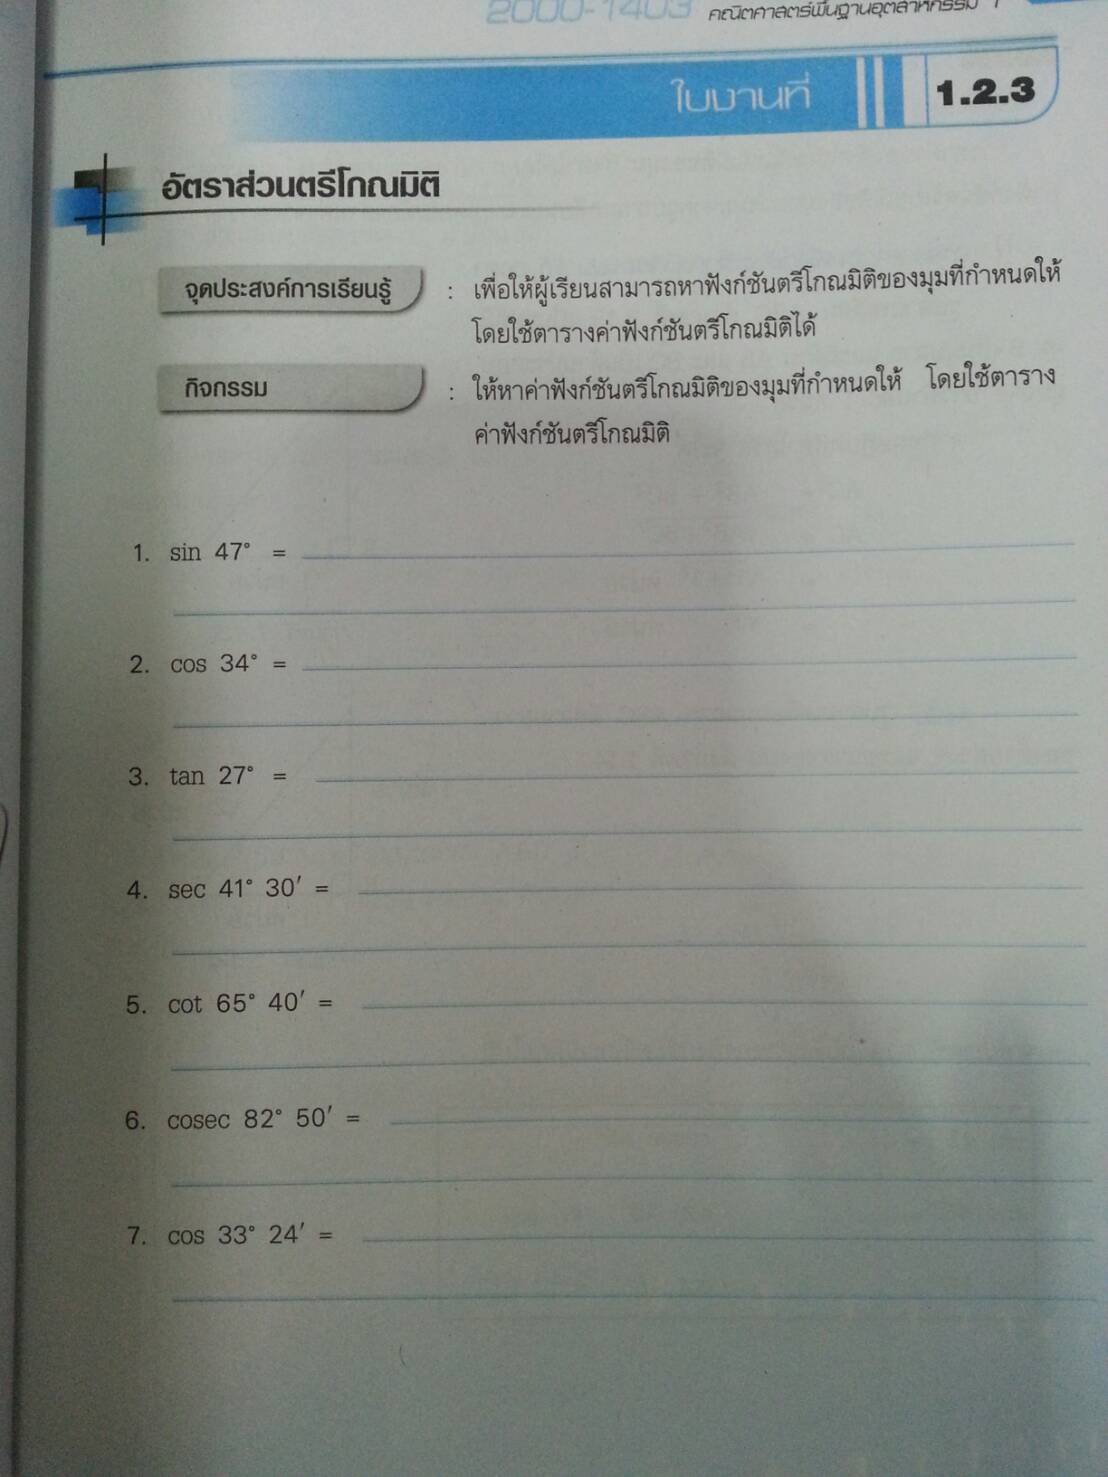 2000-1403 คณิตศาสตร์พื้นฐานอุตสาหกรรม 1
ใบงานที่ 1.2.3
อัตราส่วนตรีโกณมิติ
จุดประสงค์การเรียนรู้ : เพื่อให้ผู้เรียนสามารถหาฟังก์ชันตรีโกณมิติของมุมที่กำหนดให้
โดยใช้ตารางค่าฟังก์ชันตรีโกณมิติได้
กิจกรรม : ให้หาค่าฟังก์ชันตรีโกณมิติของมุมที่กำหนดให้ โดยใช้ตาราง
ค่าฟังก์ชันตรีโกณมิติ
1. sin 47° =
2. cos 34° =
3. tan 27° =
4. sec 41° 30′ =
5. cot 65° 40′ =
6. cosec 82° 50′ =
7. cos 33° 24′ =